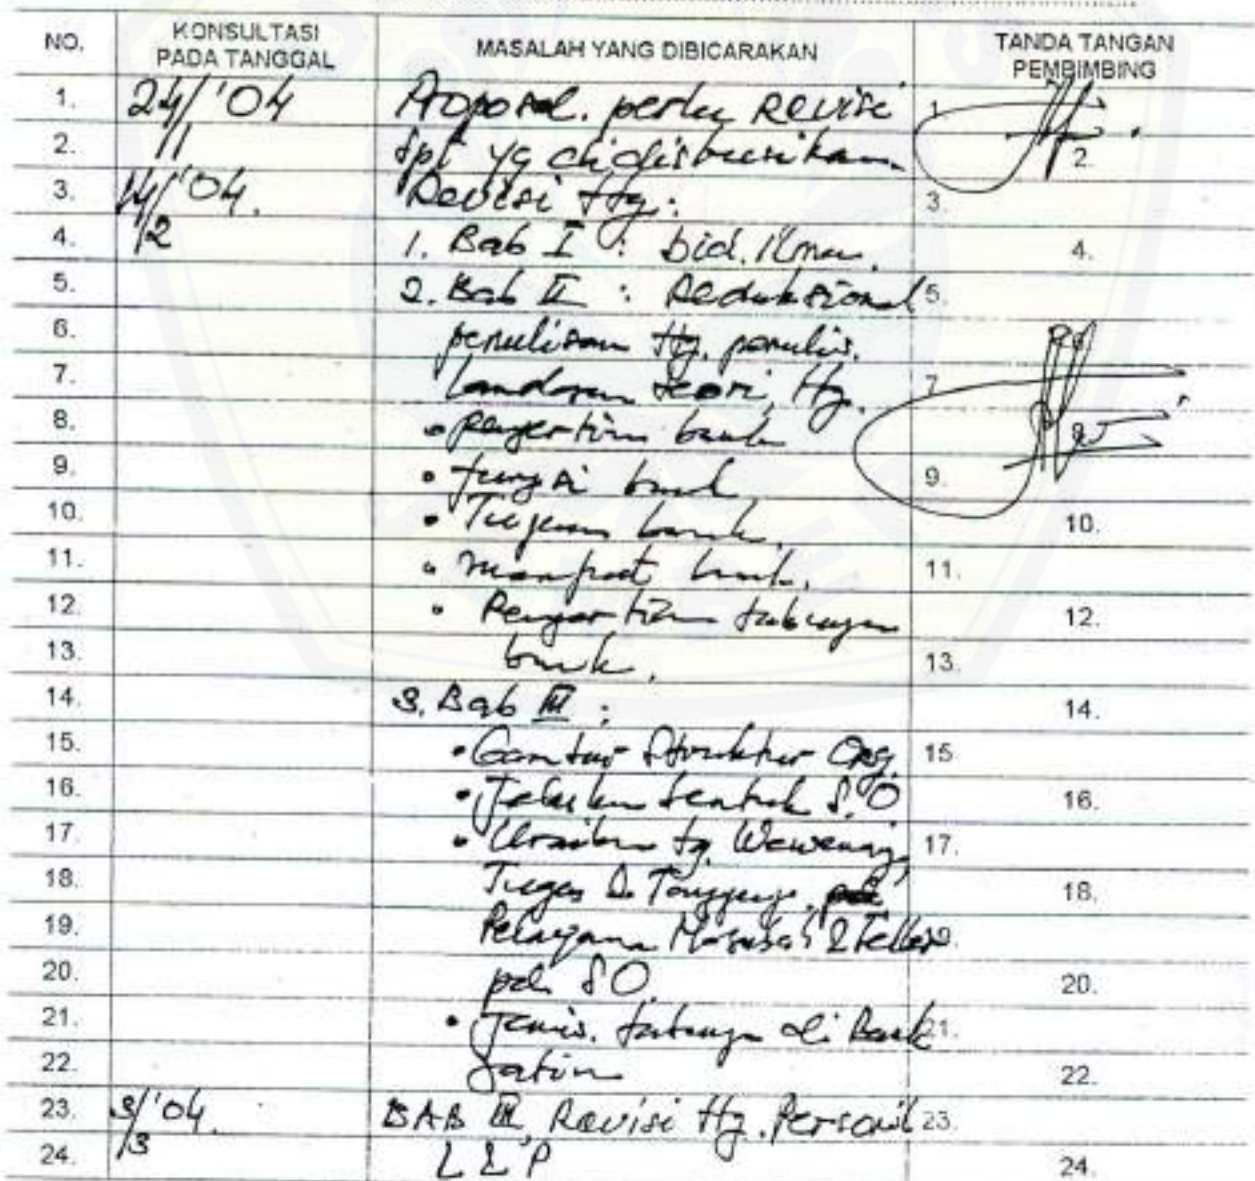 NO. KONSULTASI PADA TANGGAL MASALAH YANG DIBICARAKAN TANDA TANGAN PEMBIMBING
1. 24/1 '04 Proposal. perlu Revisi 1.
2. spt yg didisbusikan 2.
3. 14/2 '04. Revisi ttg: 3.
4. 1. Bab I : bid. Ilmu. 4.
5. 2. Bab II : Reduksional 5.
6. penulisan ttg. penulis. 6.
7. Landasan teori, ttg. 7.
8. • pengertian bank 8.
9. • fungsi bank, 9.
10. • Tujuan bank, 10.
11. • manfaat bank, 11.
12. • Pengertian tabungan 12.
13. bank, 13.
14. 3. Bab III : 14.
15. • Gambar Struktur Org. 15.
16. • Jelaskan bentuk S.O 16.
17. • Uraian tg. Wewenang, 17.
18. Tugas & Tanggung. 18.
19. Pelayanan Nasabah & Teller 19.
20. pd. SO 20.
21. • Jenis. tabungan di Bank 21.
22. Jatim 22.
23. 3/3 '04. BAB III, Revisi ttg. Personil 23.
24. L L P 24.